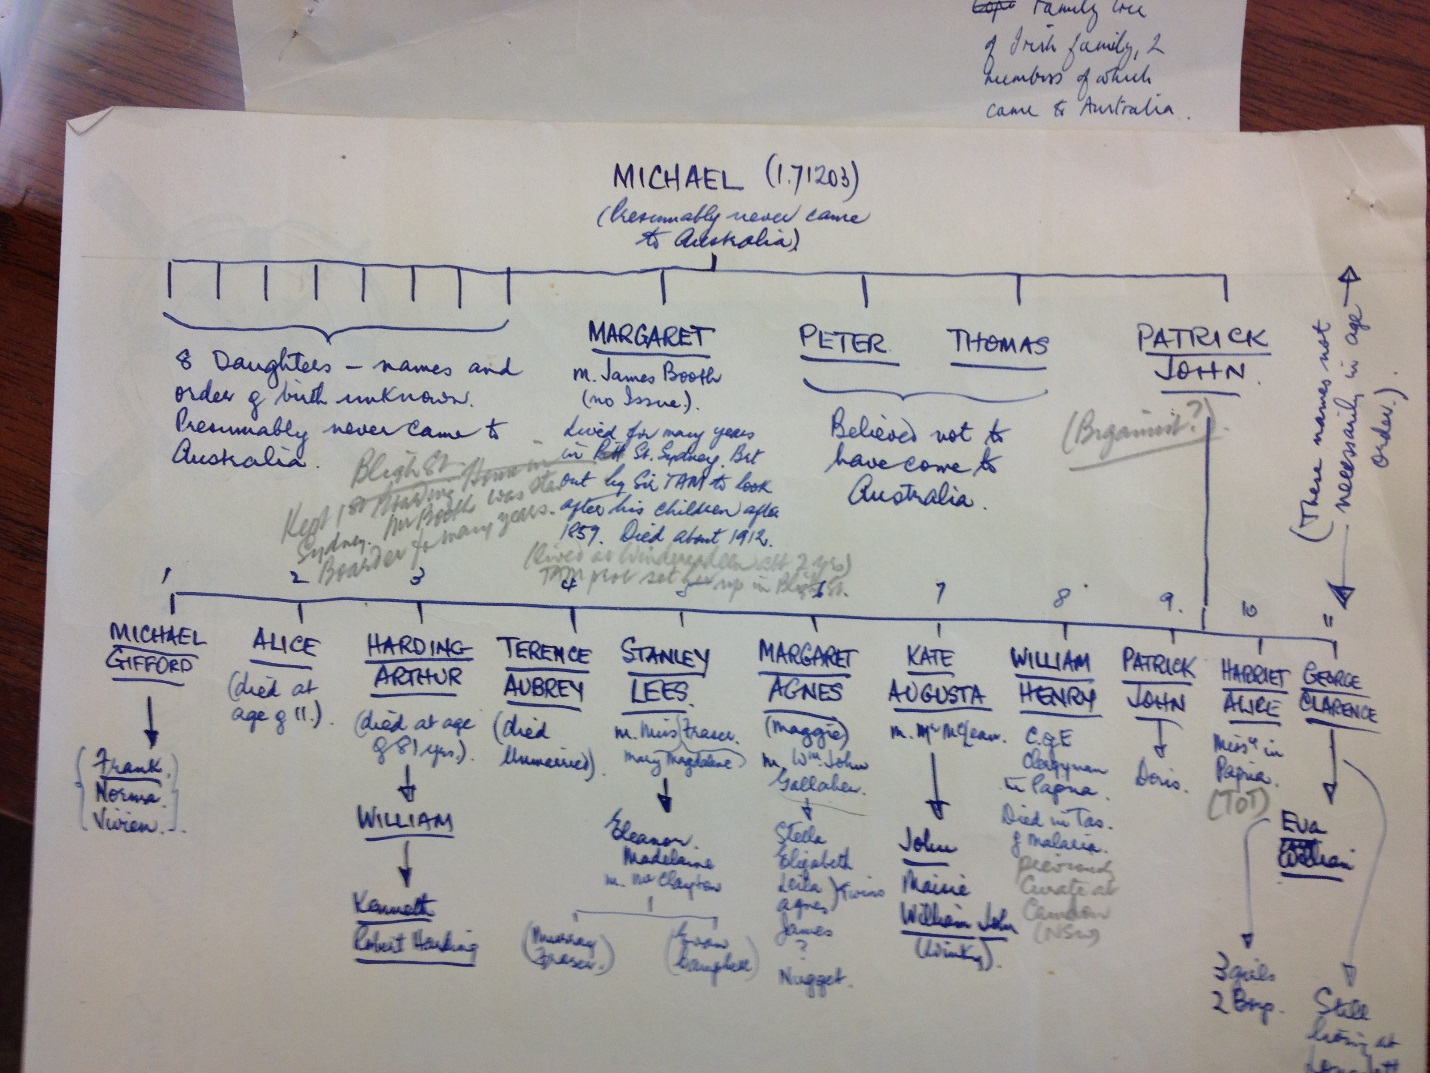 Family tree
of Irish family, 2
members of which
came to Australia.
MICHAEL (1.71203)
(Presumably never came
to Australia)
8 Daughters – names and
order of birth unknown.
Presumably never came to
Australia.
MARGARET
m. James Booth
(no Issue.).
Lived for many years
in Pitt St. Sydney. Brt
out by Sir TAM to look
after his children after
1859. Died about 1912.
(lived at Winderradeen abt 2 yrs)
TAM prob set her up in Bligh St.
Bligh St.
Kept 1st Boarding House in
Sydney. Mr Booth was star
Boarder for many years.
PETER.
THOMAS
Believed not to
have come to
Australia.
PATRICK
JOHN.
(Bigamist?)
(These names not
necessarily in age
order.)
1
2
3
4
5
6
7
8
9.
10
11
MICHAEL
GIFFORD
Frank.
Norma.
Vivien.
ALICE
(died at
age of 11.).
HARDING
ARTHUR
(died at age
of 81 yrs.).
WILLIAM
Kenneth
Robert Harding
TERENCE
AUBREY
(died
Unmarried).
STANLEY
LEES.
m. Miss Fraser.
Mary Magdalene
Eleanor.
Madelaine
m. Mr Clayton
(Murray
Fraser.)
(Evan
Campbell)
MARGARET
AGNES
(Maggie)
m. Wm. John
Gallaher.
Stella
Elizabeth
Leila
Agnes
) Twins
James
?
Nugget.
KATE
AUGUSTA
m. Mr McLean.
John
Mairie
William John
(Winky).
WILLIAM
HENRY
C of E
Clergyman
in Papua.
Died in Tas.
of malaria.
previously
Curate at
Camden
(NSW)
PATRICK
JOHN
Doris.
HARRIET
ALICE
Missy in
Papua.
(TOT)
3 girls
2 Boys.
GEORGE
CLARENCE
Eva
William
Still
living at